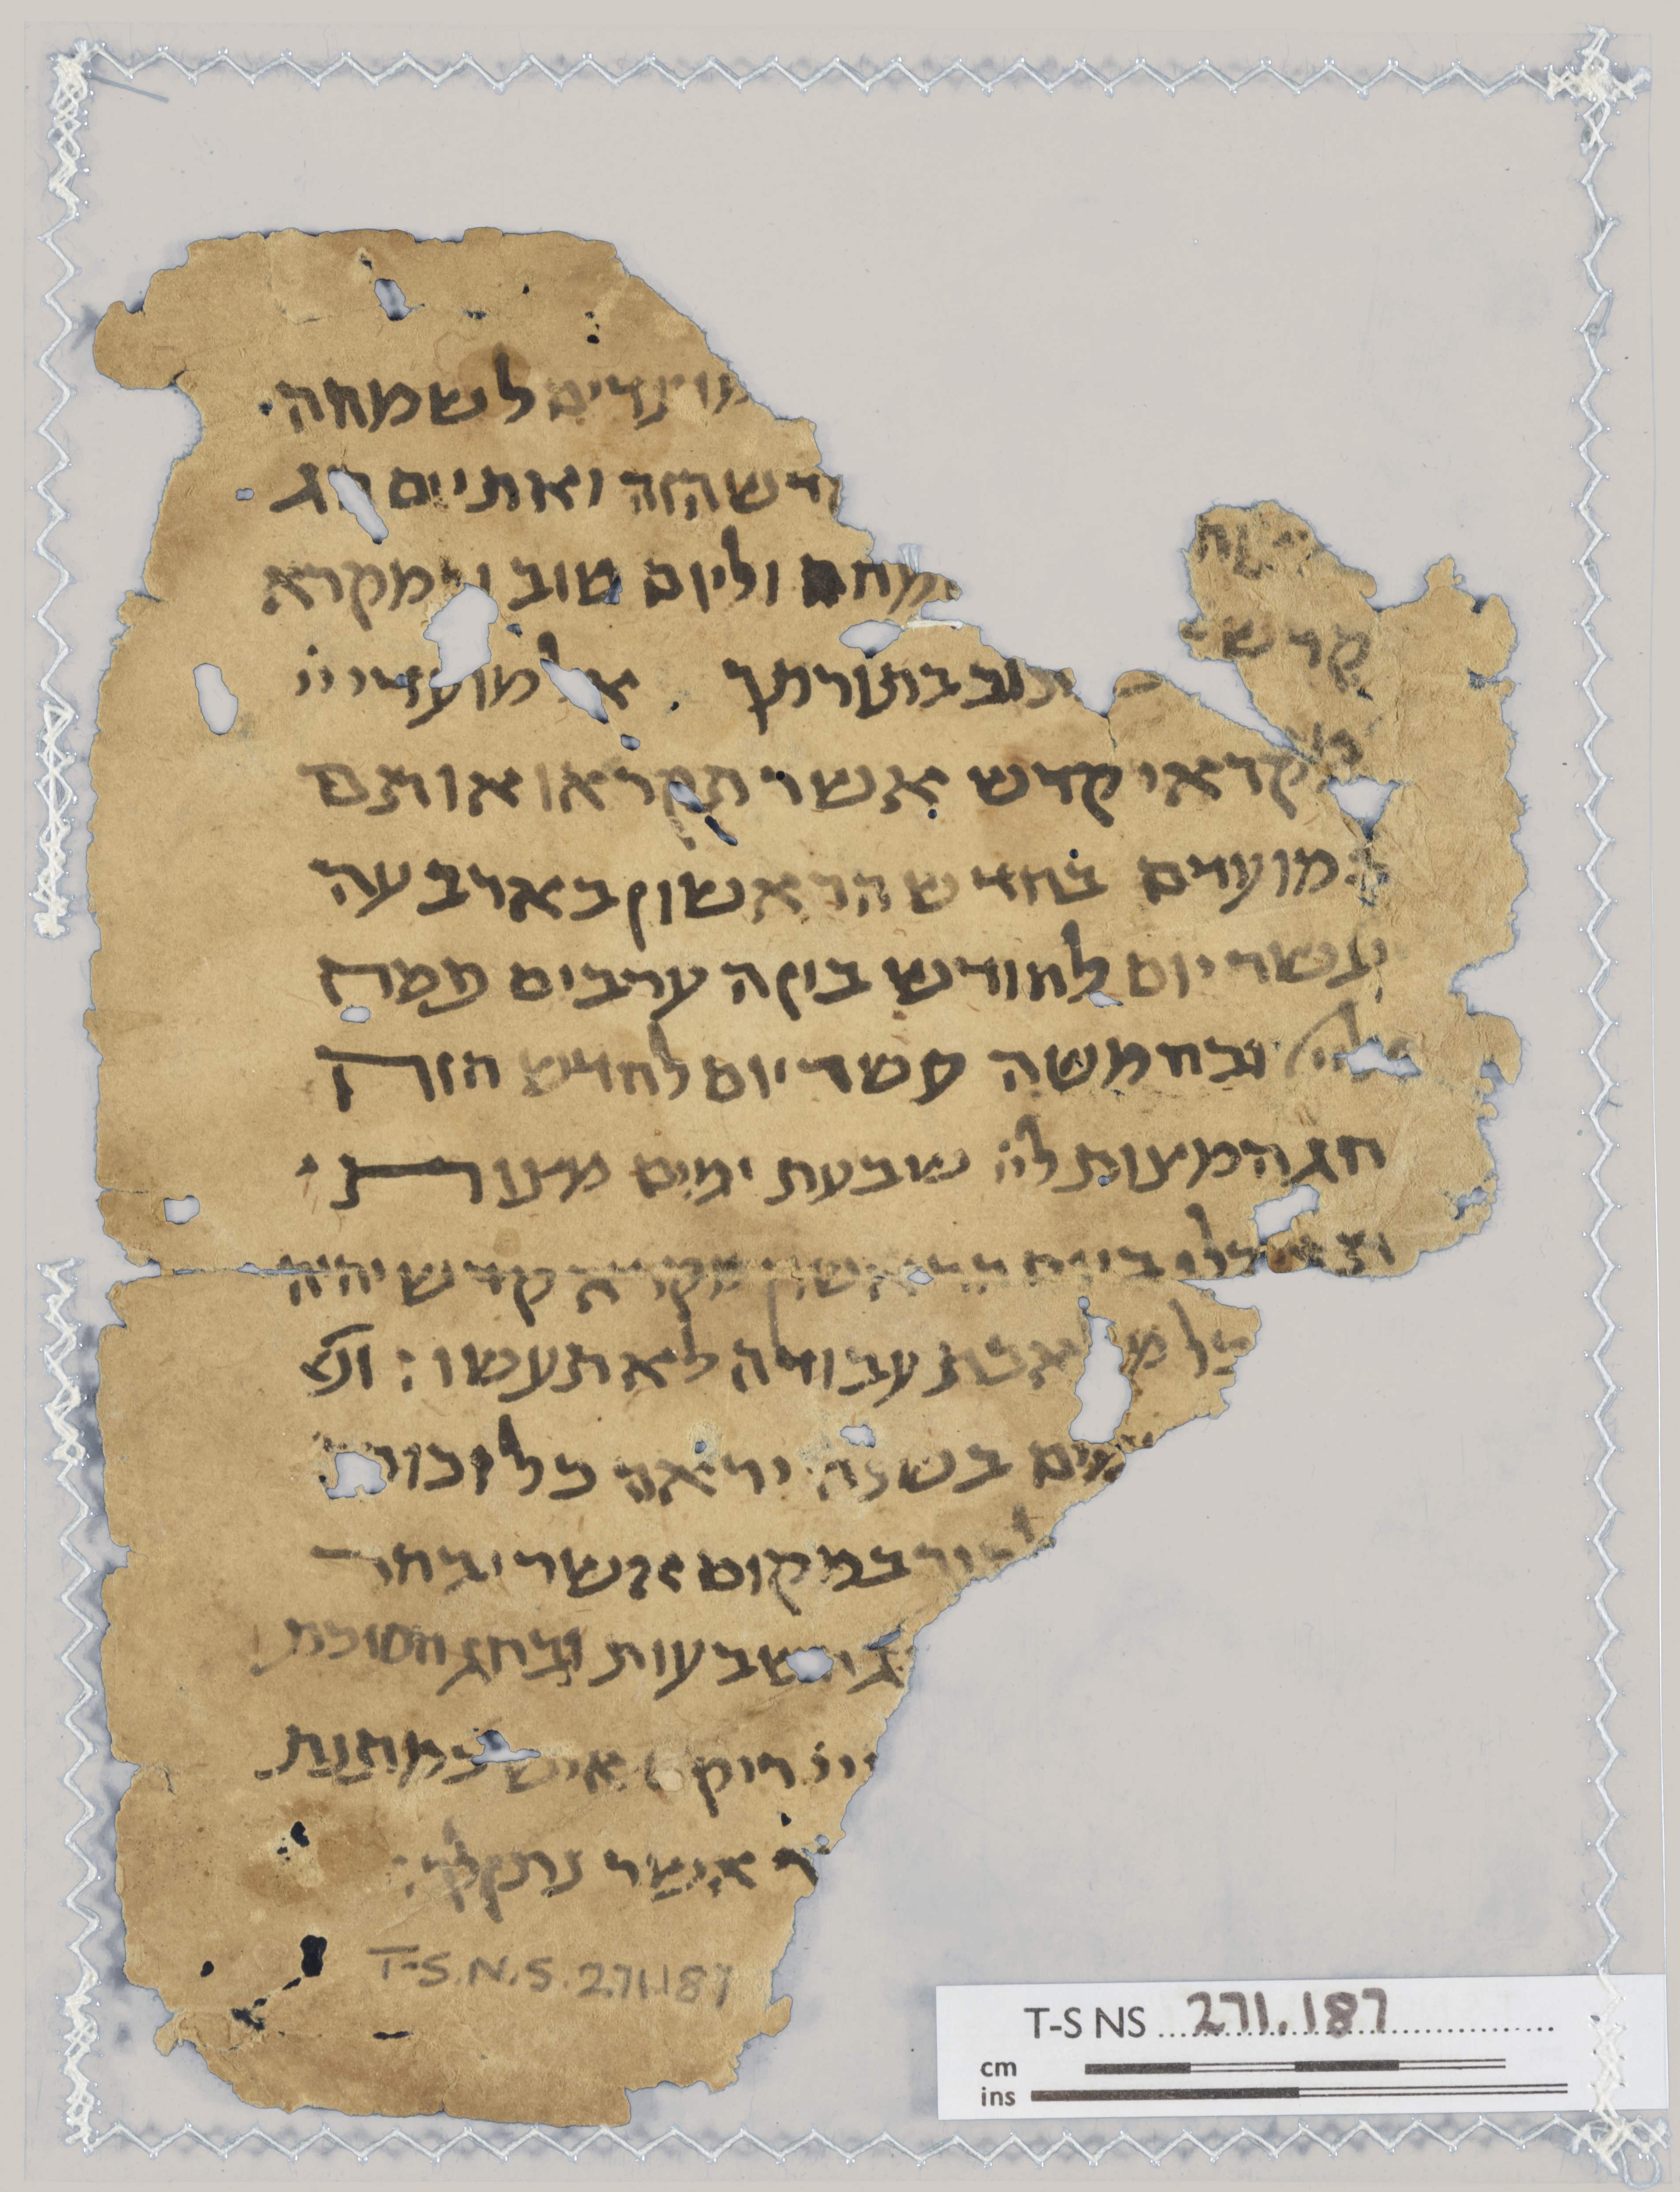 מועדים לשמחה
הזה ואת יום חג
וליום טוב מקרא
קדש בתורתך אלה מועדי ייי
מקראי קדש אשר תקראו אותם
במועדם בחדש הראשון בארבעה
עשר יום לחודש בין הערבים פסח
ובחמשה עשר יום לחדש הזה
חג המצות לייי שבעת ימים מצות
תאכלו ביום הראשון מקרא קדש יהיה
כל מלאכת עבודה לא תעשו :
בשנה יראה כל זכורך
במקום אשר יבחר
שבעות ובחג הסוכת
ייי ריקם איש כמתנת
אשר נתן לך :
T-S.N.S. 271.187
T-S NS 271.187
cm
ins